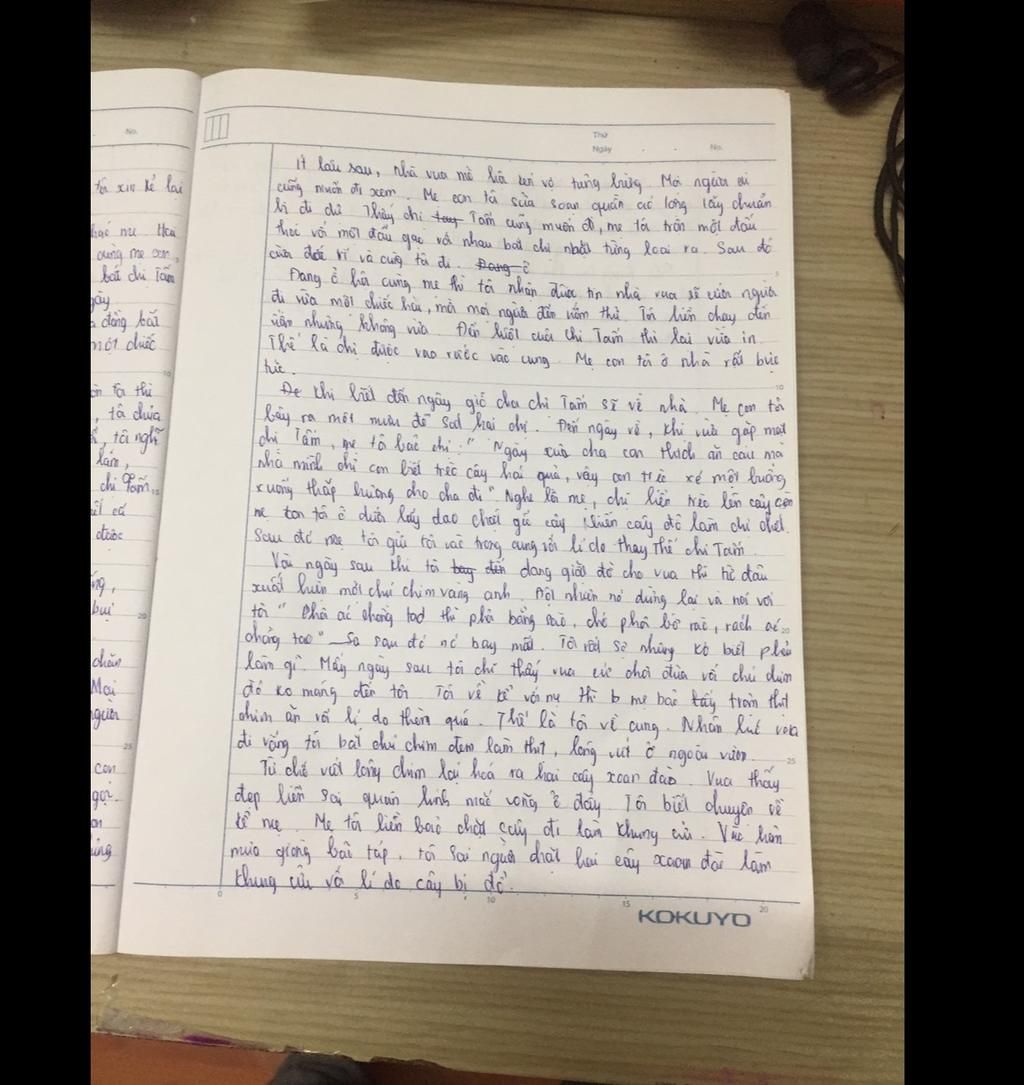 No.
tôi xin kể lại
cùng mẹ con
bắt chị Tấm
một chiếc
tôi thì
, tôi chưa
, tôi nghĩ
lắm,
chị Tấm
được
chăn
Mọi
người
con
Thứ
Ngày
No.
Ít lâu sau, nhà vua mở hội vô tưng bừng. Mọi người ai
cũng muốn đi xem. Mẹ con tôi sửa soạn quần áo lộng lẫy chuẩn
bị đi dự. Thấy chị Tấm cũng muốn đi, mẹ tôi trộn một đấu
thóc với một đấu gạo với nhau bắt chị nhặt từng loại ra. Sau đó
và cùng tôi đi. Đang ở
Đang ở hội cùng mẹ thì tôi nhận được tin nhà vua sẽ cưới người
đi vừa một chiếc hài, mà mọi người đến ướm thử. Tôi liền chạy đến
nhưng không vừa. Đến lượt chị Tấm thì lại vừa in.
Thế là chị được vào rước vào cung. Mẹ con tôi ở nhà rất bực
tức.
Khi biết đến ngày giỗ cha chị Tấm sẽ về nhà. Mẹ con tôi
bày ra một mưu để sát hại chị. Đến ngày về, khi vừa gặp mặt
chị Tấm, mẹ tôi bảo chị: " Ngày xưa cha con thích ăn cau mà
nhà mình chỉ con biết trèo cây hái quả, vậy con trèo xé một buồng
xuống thắp hương cho cha đi". Nghe lời mẹ, chị liền trèo lên cây còn
mẹ con tôi ở dưới lấy dao chặt gốc cây khiến cây đổ làm chị chết.
Sau đó mẹ tôi gửi tôi vào trong cung với lí do thay thế chị Tấm.
Vài ngày sau khi tôi đang giặt đồ cho vua thì từ đâu
xuất hiện một chú chim vàng anh. Đột nhiên nó dừng lại và nói với
tôi " Phơi áo chồng tao thì phơi bằng sào, chớ phơi bờ rào, rách áo
chồng tao" sau đó nó bay mất. Tôi rất sợ nhưng ko biết phải
làm gì. Mấy ngày sau tôi chỉ thấy vua cứ chơi đùa với chú chim
đó ko màng đến tôi. Tôi về kể với mẹ thì mẹ bảo thịt
chim ăn với lí do thèm quá. Thế là tôi về cung. Nhân lúc vua
đi vắng tôi bắt chú chim đem làm thịt, lông vứt ở ngoài vườn.
Từ chỗ vứt lông chim lại hoá ra hai cây xoan đào. Vua thấy
đẹp liền sai quân lính mắc võng ở đấy. Tôi biết chuyện về
kể mẹ. Mẹ tôi liền bảo chặt cây đi làm khung cửi. Vào hôm
mưa giông bão táp, tôi sai người chặt hai cây xoan đào làm
khung cửi với lí do cây bị đổ.
5
10
15
20
25
0
5
10
15
20
KOKUYO